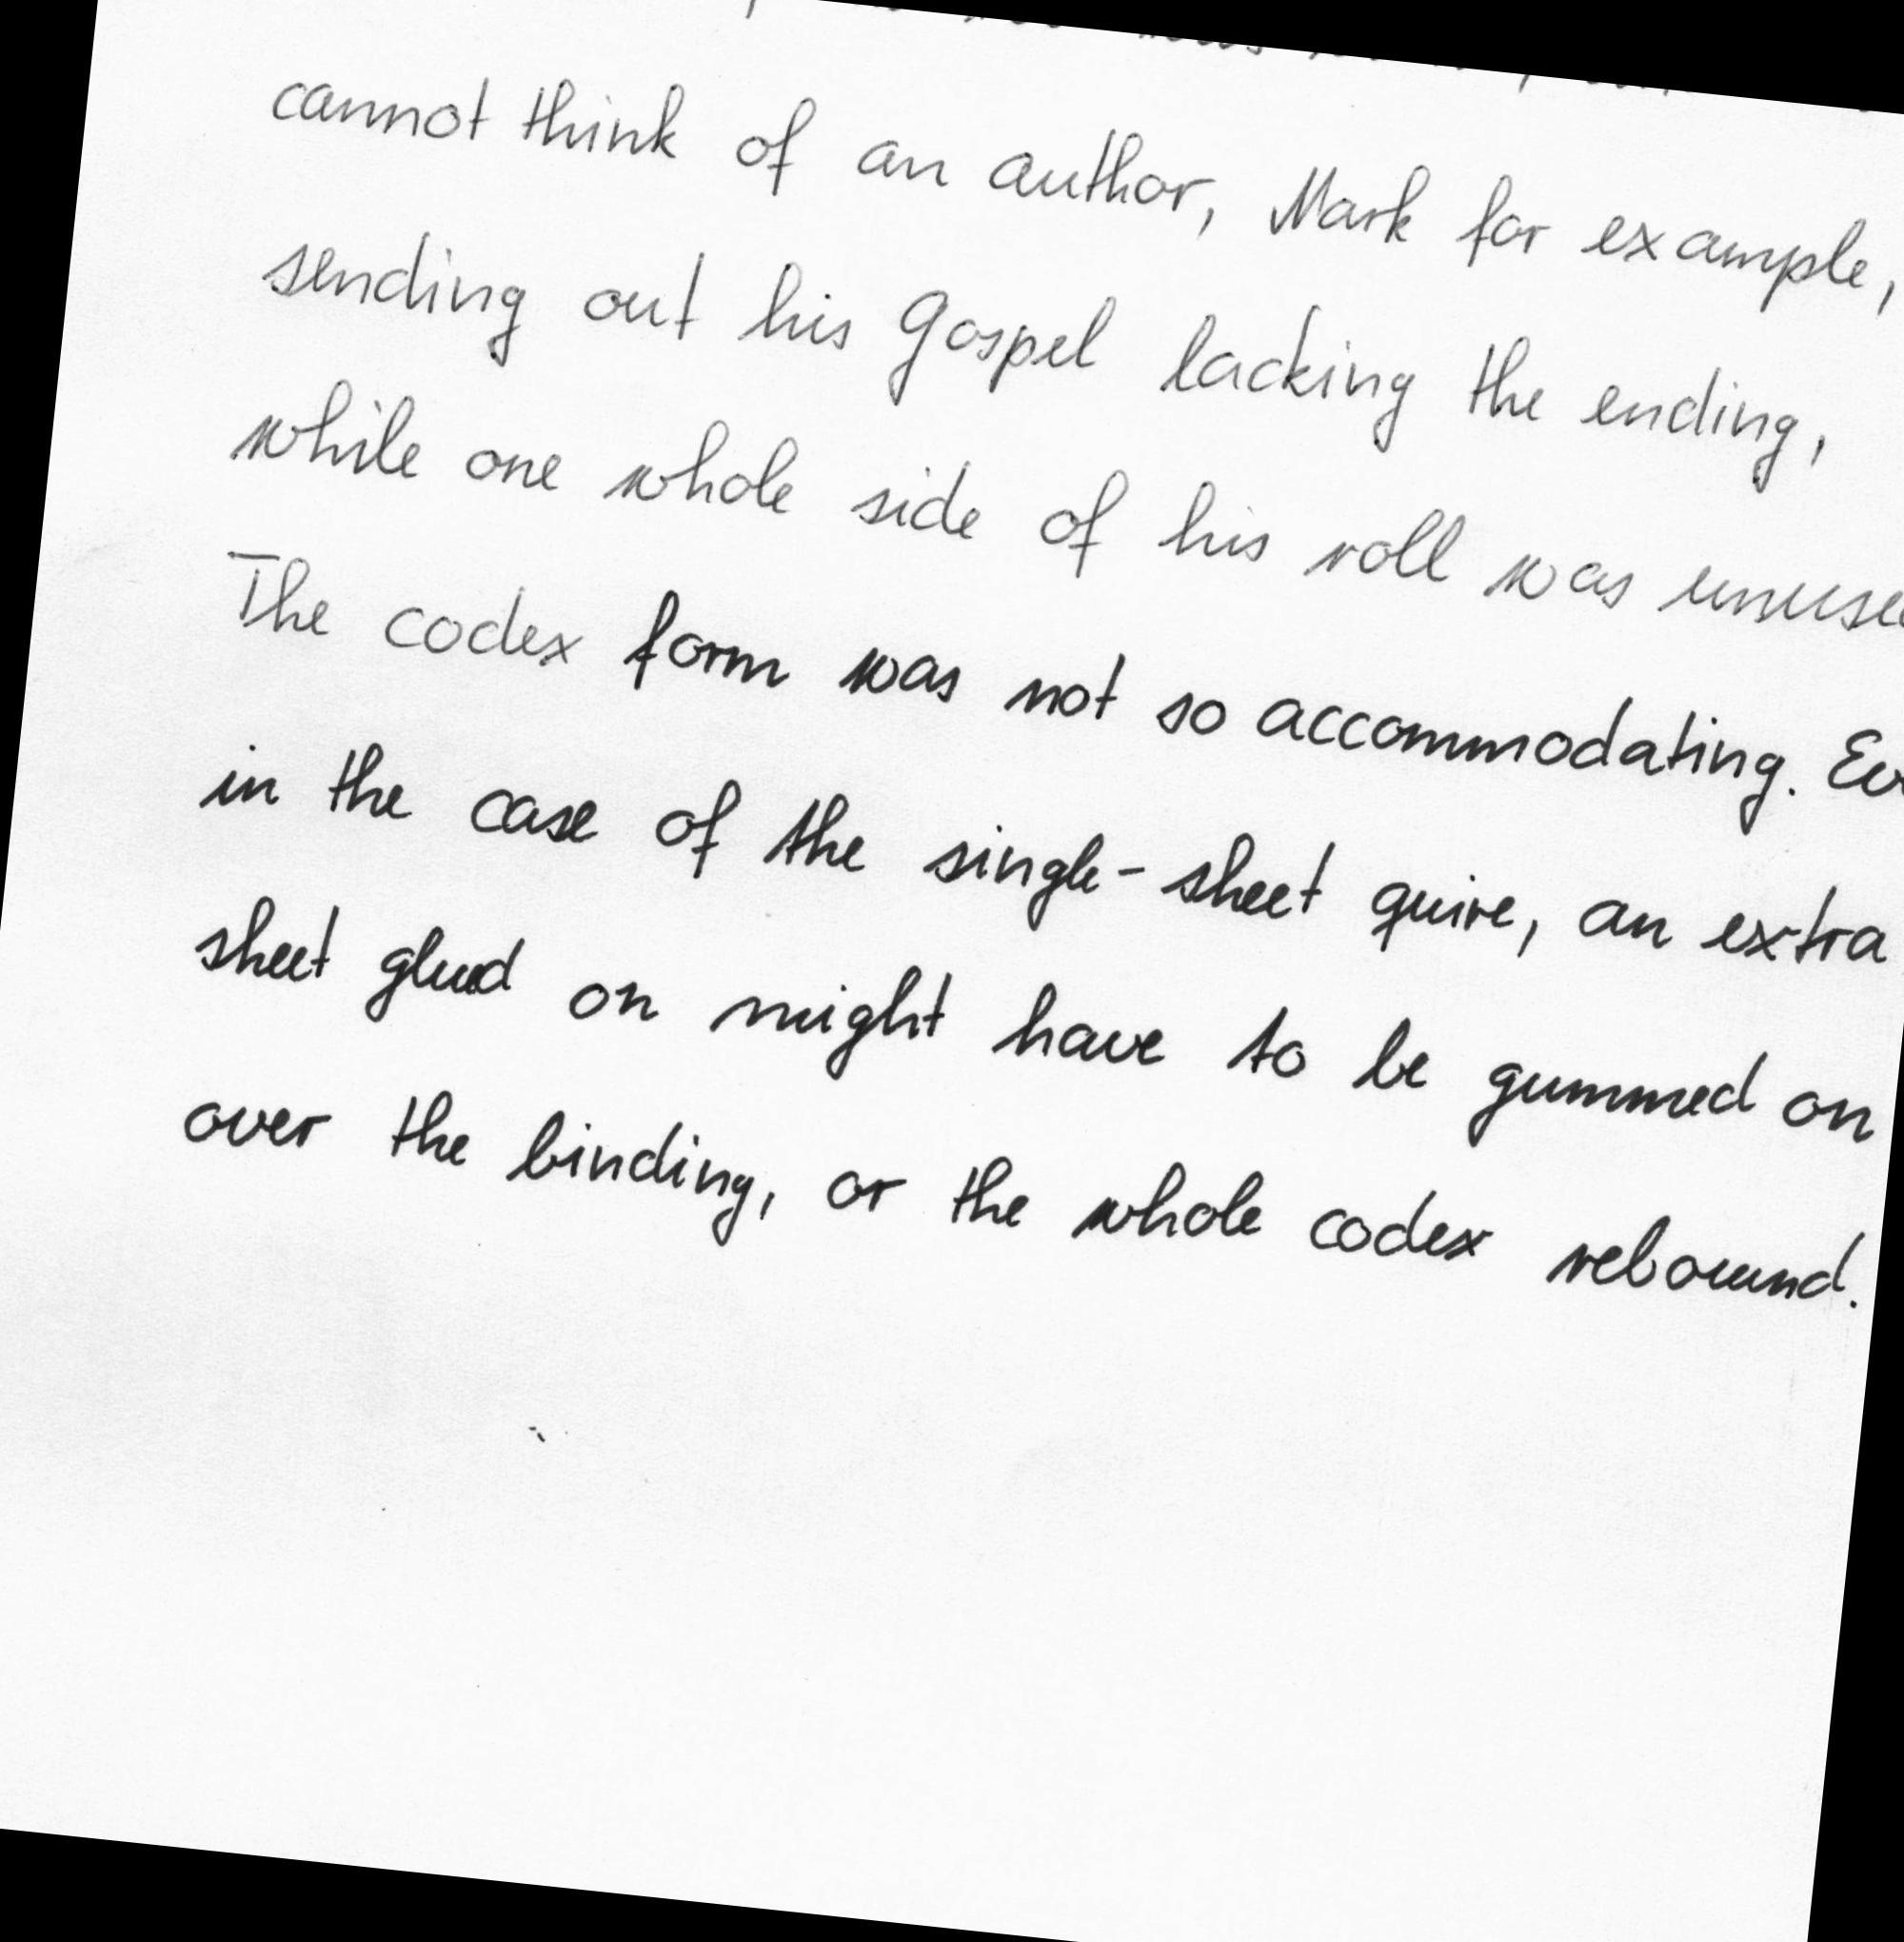 cannot think of an author, Mark for example,
sending out his Gospel lacking the ending,
while one whole side of his roll was
The codex form was not so accommodating.
in the case of the single-sheet quire, an extra
sheet glued on might have to be gummed on
over the binding, or the whole codex rebound.